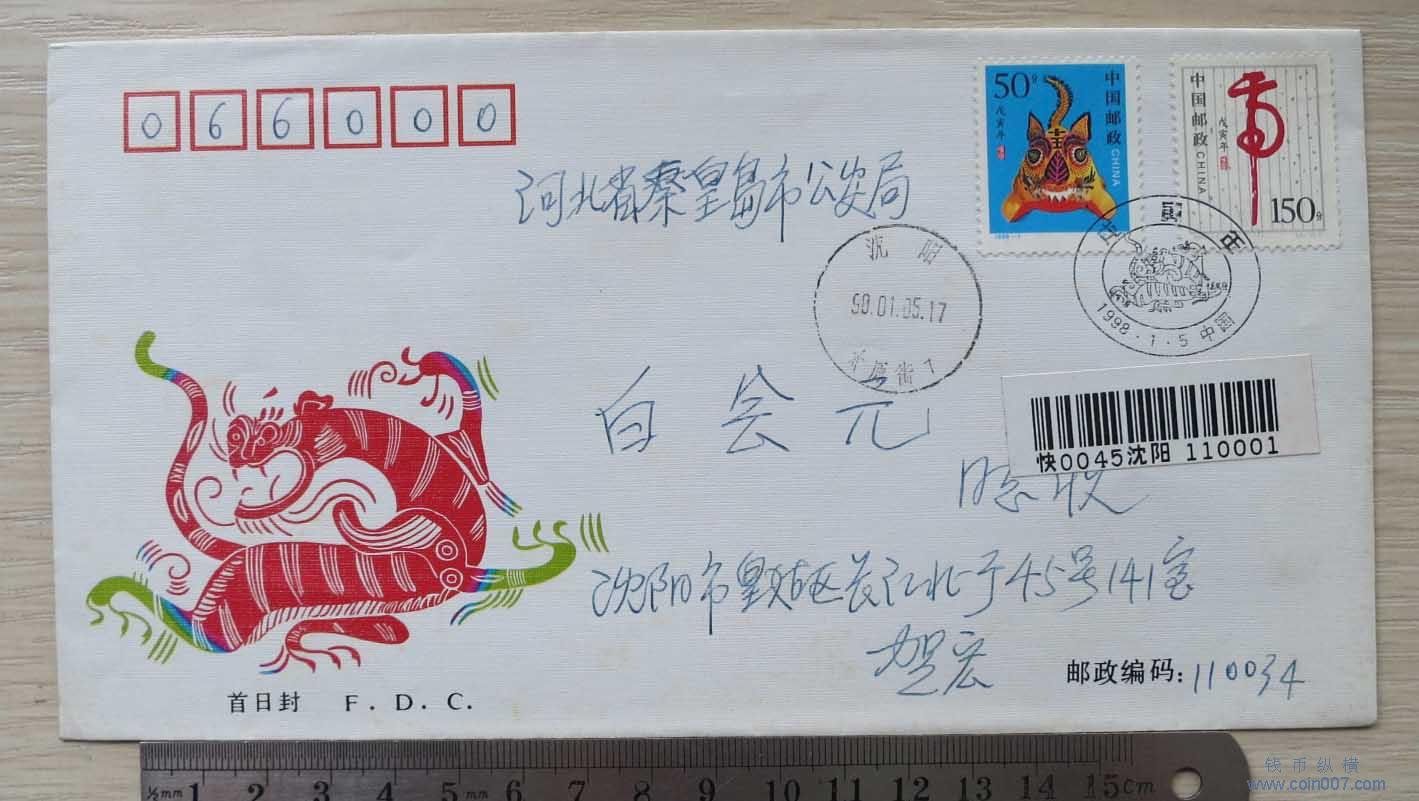 066000
50分 中国邮政 CHINA
戊寅年
中国邮政 CHINA
戊寅年
150分
河北省秦皇岛市公安局
沈阳
98.01.05.17
戊寅年
1998.1.5 中国
白会元
快0045沈阳 110001
收
沈阳市皇姑区长江北 45号141室
贺宏
邮政编码: 110034
首日封 F. D. C.
½mm 1 2 3 4 5 mm 6 7 8 9 10 11 12 13 14 15cm
钱币纵横
www.coin007.com